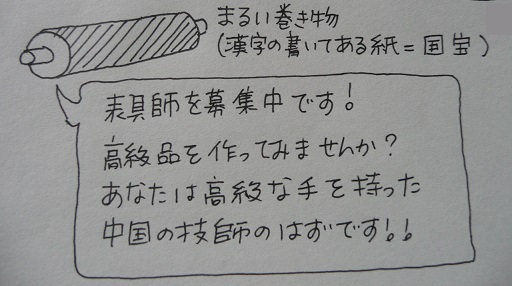 まるい巻き物
(漢字の書いてある紙=国宝)
表具師を募集中です!
高級品を作ってみませんか?
あなたは高級な手を持った
中国の技師のはずです!!